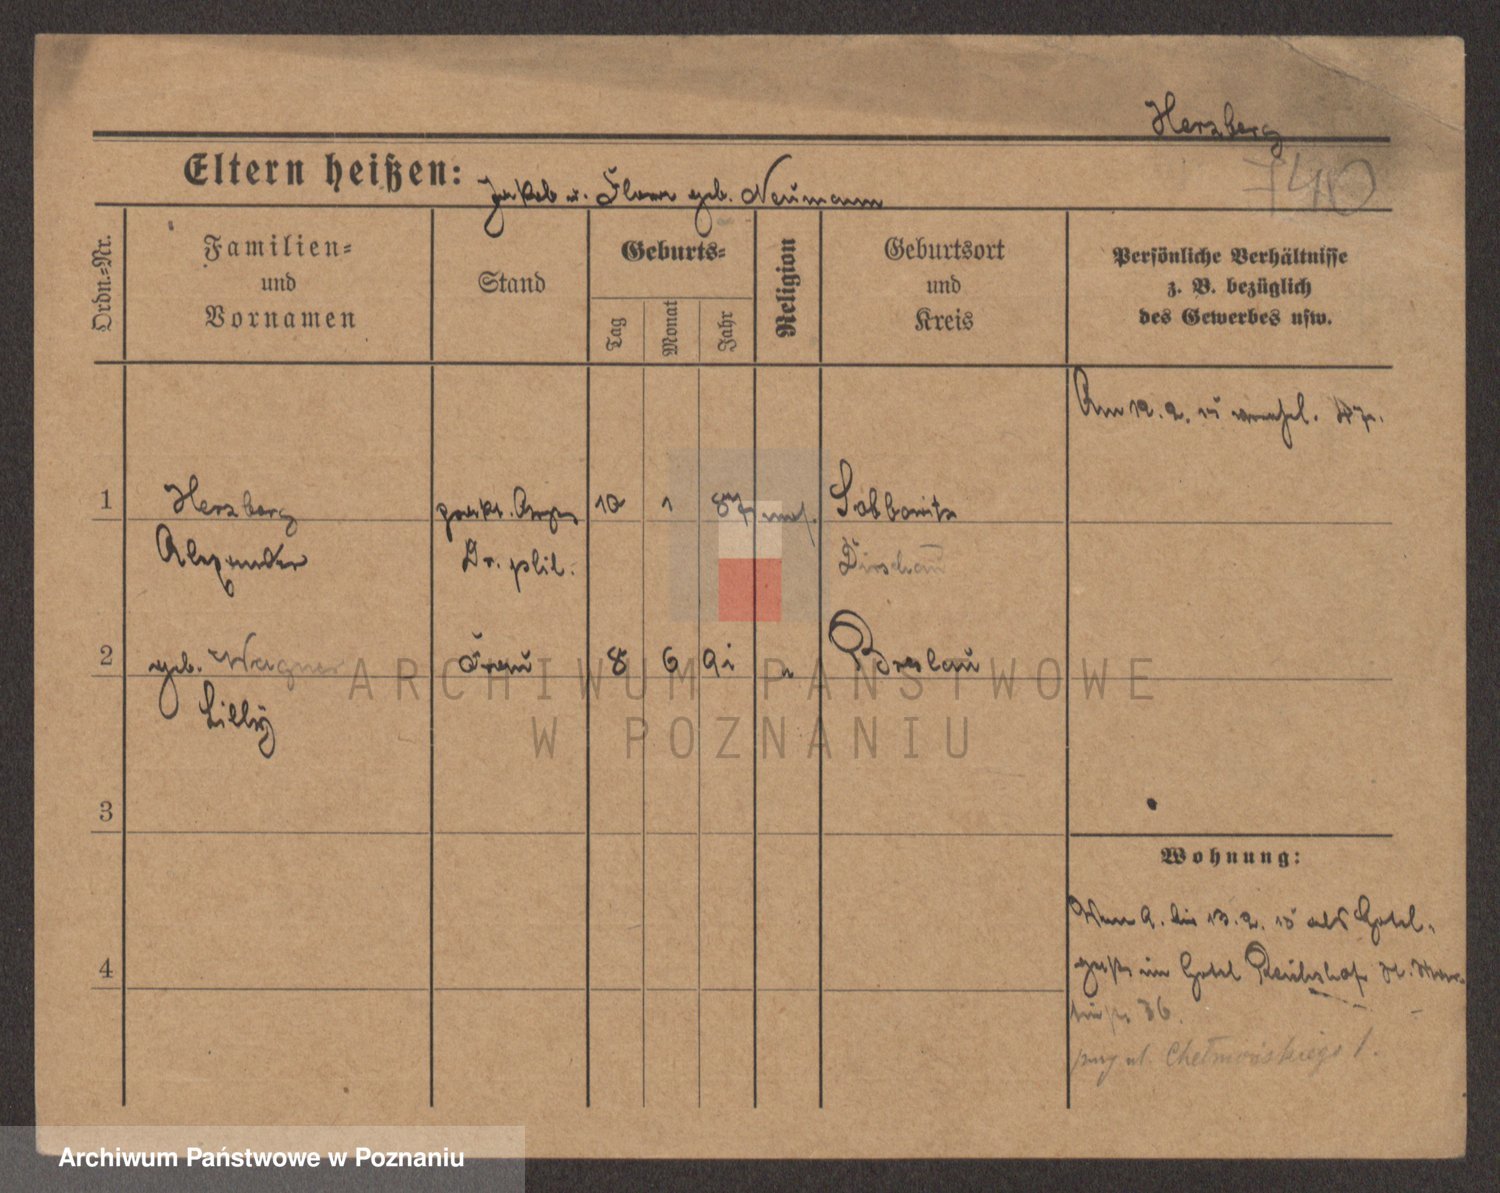 Herzberg
740
Eltern heißen: Jakob u. Flora geb. Neumann
Ordn.=Nr.
Familien=
und
Vornamen
Stand
Geburts=
Tag
Monat
Jahr
Religion
Geburtsort
und
Kreis
Persönliche Verhältnisse
z. B. bezüglich
des Gewerbes usw.
Am 12. 2.
1 Herzberg prakt. 10 1 87 mos. Sobbowitz
Alexander Dr. phil. Dirschau
2 geb. Wagner Frau 8 6 91 " Breslau
Lilly
3
4
Wohnung:
9. bis 13. 2. 15 als Hotel-
gast im Hotel Reichshof St. Mar-
tinstr 36.
ul. Chełmońskiego 1.
ARCHIWUM PAŃSTWOWE
W POZNANIU
Archiwum Państwowe w Poznaniu